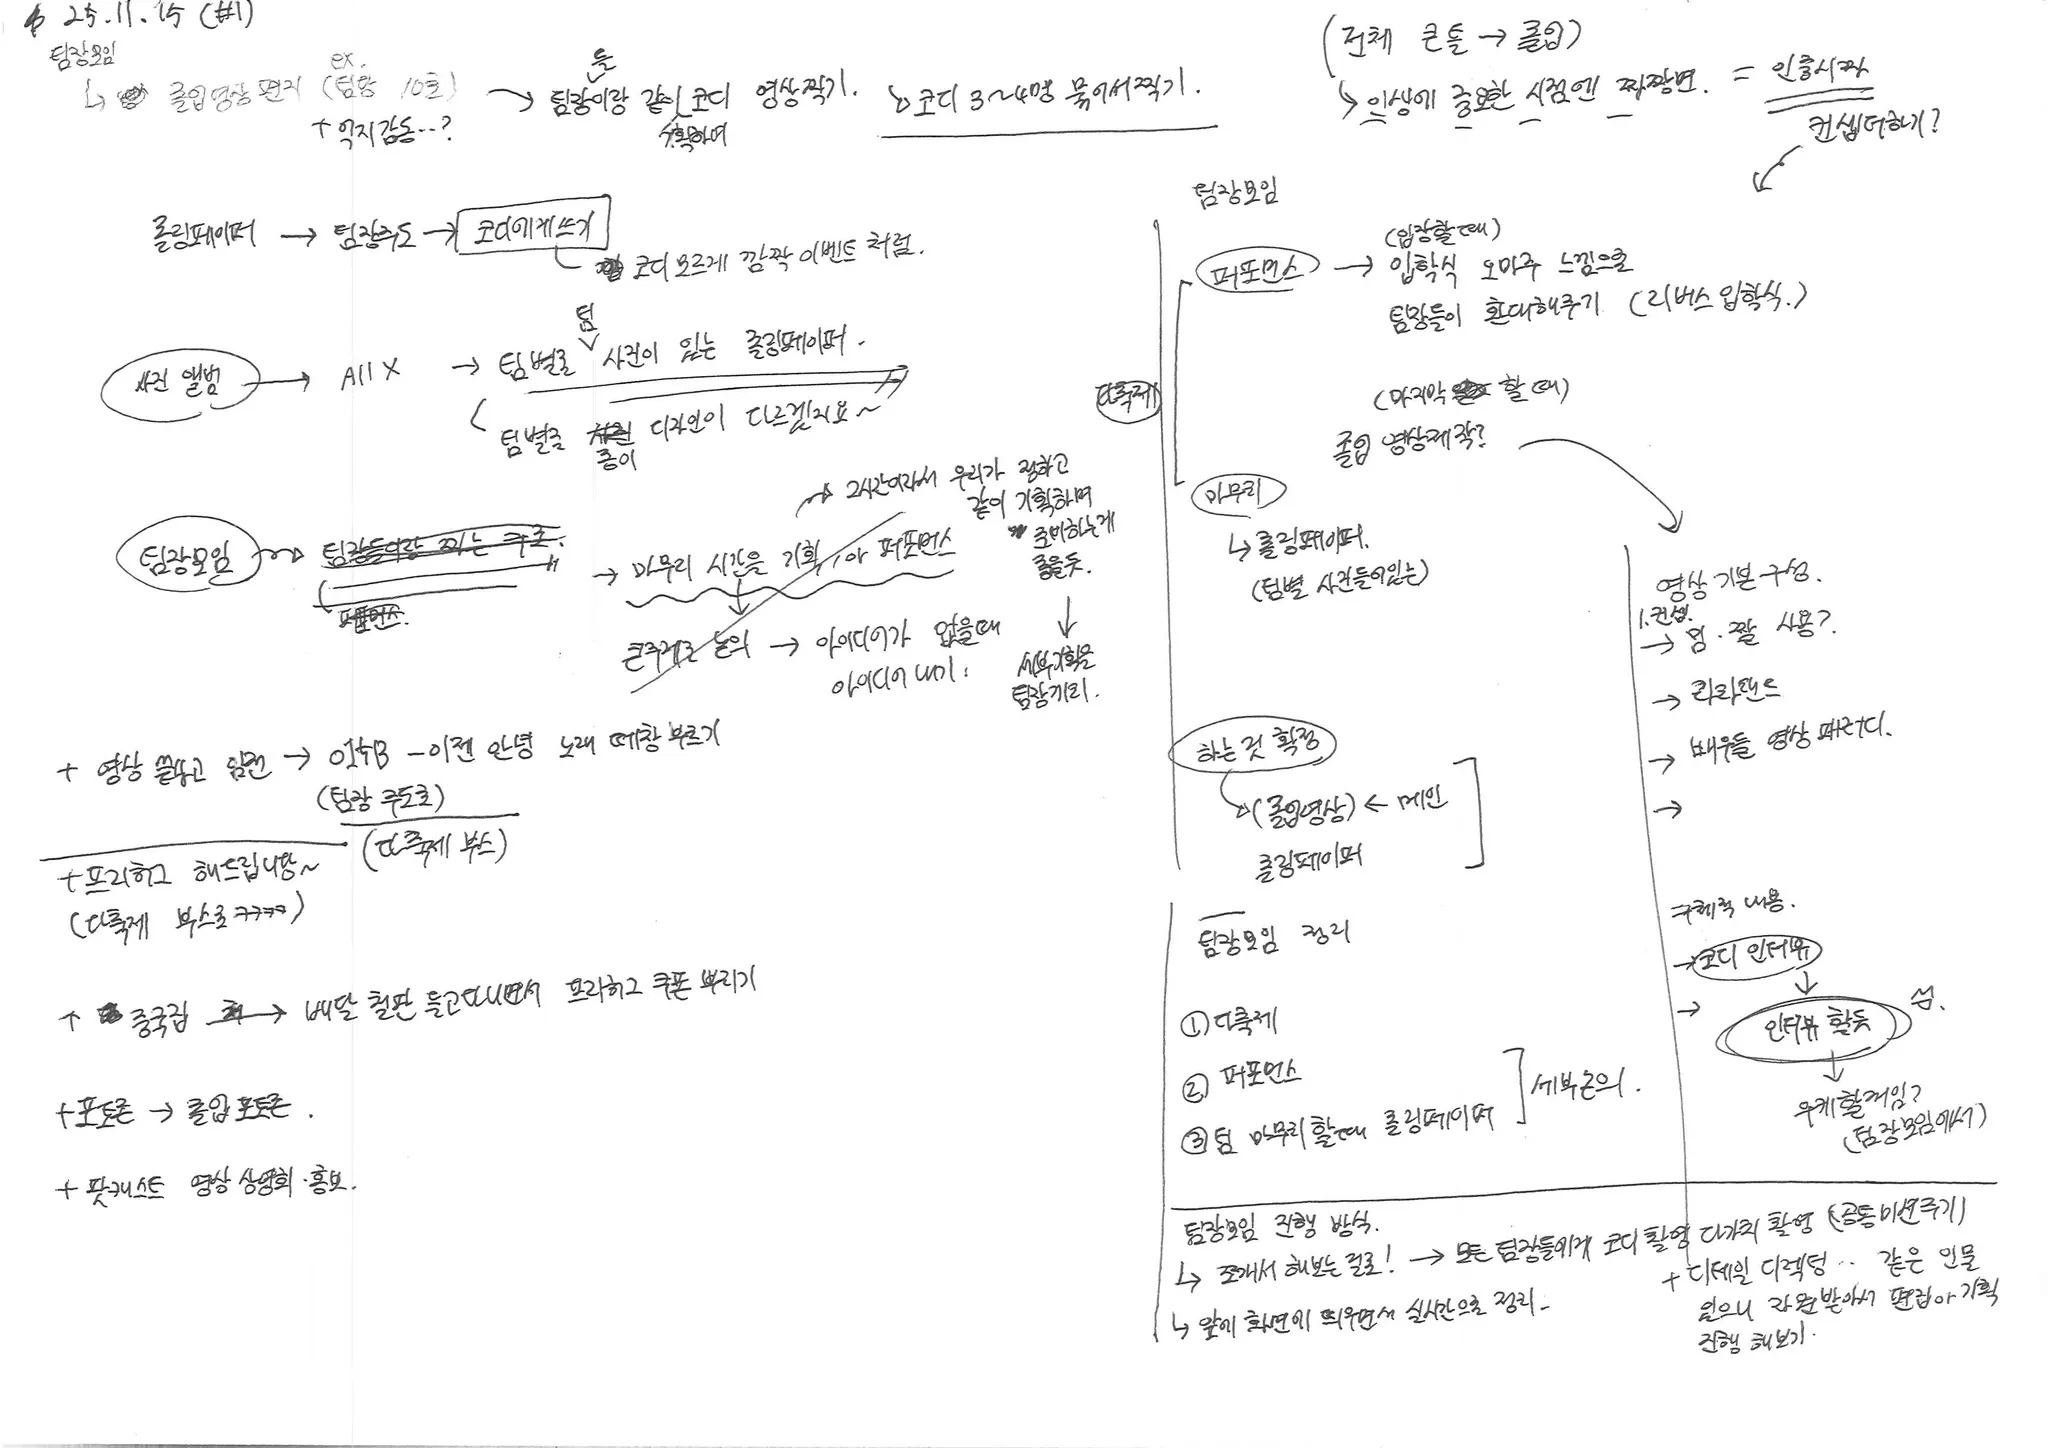 25.11.15 (#1)
팀장모임
ex.
↳ 졸업영상 편지 (팀장 10초)
+ 억지감동..?
→ 팀장이랑 같이 코디 영상찍기.
들
기획하며
↳ 코디 3~4명 묶어서찍기.
롤링페이퍼 → 팀장주도 → 코디에게쓰기
코디 모르게 깜짝 이벤트 처럼.
사진 앨범 → All X → 팀별로 사진이 있는 롤링페이퍼.
팀
팀별로 디자인이 다르겠지요~
종이
팀장모임 → 팀장들이랑 찍는 구조.
퍼포먼스.
→ 마무리 시간을 기획, 아 퍼포먼스
→ 2시간이라서 우리가 정하고
같이 기획하며
준비하는게
좋을듯.
↓
세부기획은
팀장끼리.
큰주제로 논의 → 아이디어가 없을때
아이디어 내기!
+ 영상 찍고 → 015B - 이젠 안녕 노래 떼창 부르기
(팀장 주도로)
(다축제 부스)
+ 프리허그 해드립니당~
(다축제 부스로 ㅋㅋㅋㅋ)
+ 중국집 → 배달 철판 들고다니면서 프리허그 쿠폰 뿌리기
+ 포토존 → 졸업 포토존.
+ 팟캐스트 영상 상영회·홍보.
(전체 큰 틀 → 졸업)
↳ 인생에 중요한 시점엔 짜장면. = 인증사진
컨셉더하기?
팀장모임
다축제
퍼포먼스 → (입장할때)
입학식 오마주 느낌으로
팀장들이 환대해주기 (리버스 입학식.)
(마지막 할때)
졸업 영상제작?
마무리
↳ 롤링페이퍼.
(팀별 사진들어있는)
하는 것 확정
(졸업영상) ← 메인
롤링페이퍼
영상 기본구성.
1. 컨셉.
→ 밈·짤 사용?
→ 라라랜드
→ 배우들 영상 패러디.
→
구체적 내용.
→ 코디 인터뷰
→
인터뷰 할듯
우케할거임?
(팀장모임에서)
팀장모임 정리
① 다축제
② 퍼포먼스
③ 팀 마무리할때 롤링페이퍼
세부논의.
팀장모임 진행 방식.
↳ 쪼개서 해보는걸로! → 모든 팀장들에게 코디 촬영 다가치 촬영 (공통미션주기)
+ 디테일 디렉팅.. 같은 인물
있으니 자원받아서 편집아 기획
진행 해보기.
↳ 앞에 화면에 띄우면서 실시간으로 정리.